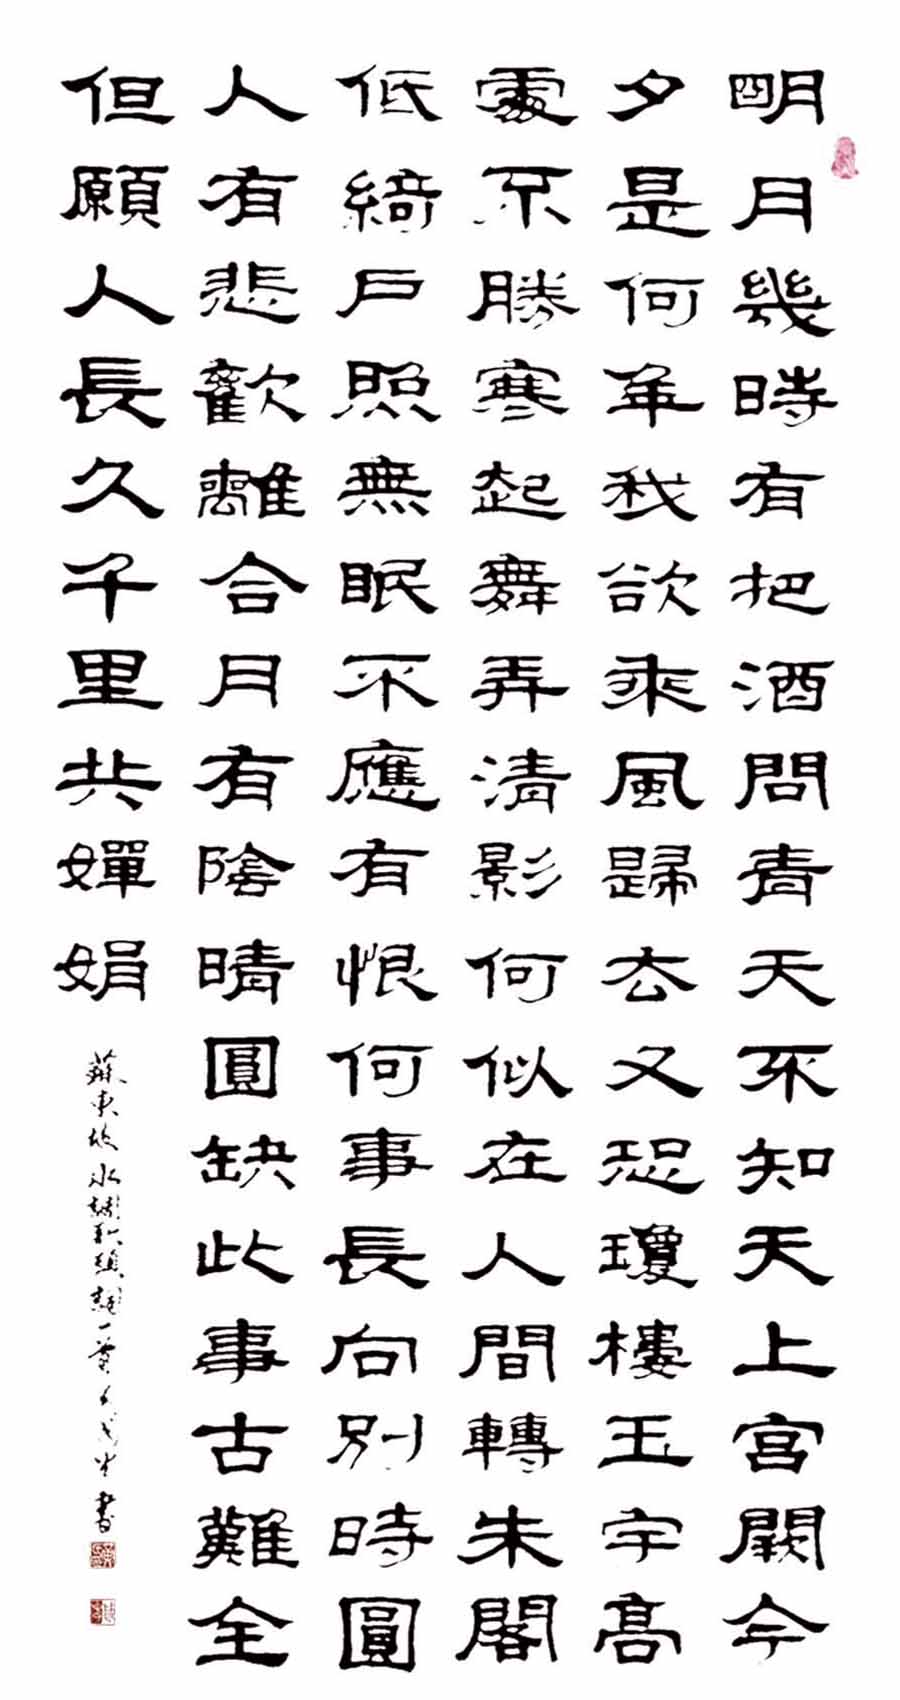 明月幾時有把酒問青天不知天上宮闕今
夕是何年我欲乘風歸去又恐瓊樓玉宇高
處不勝寒起舞弄清影何似在人間轉朱閣
低綺戶照無眠不應有恨何事長向別時圓
人有悲歡離合月有陰晴圓缺此事古難全
但願人長久千里共嬋娟
蘇東坡水調歌頭詞一首 書